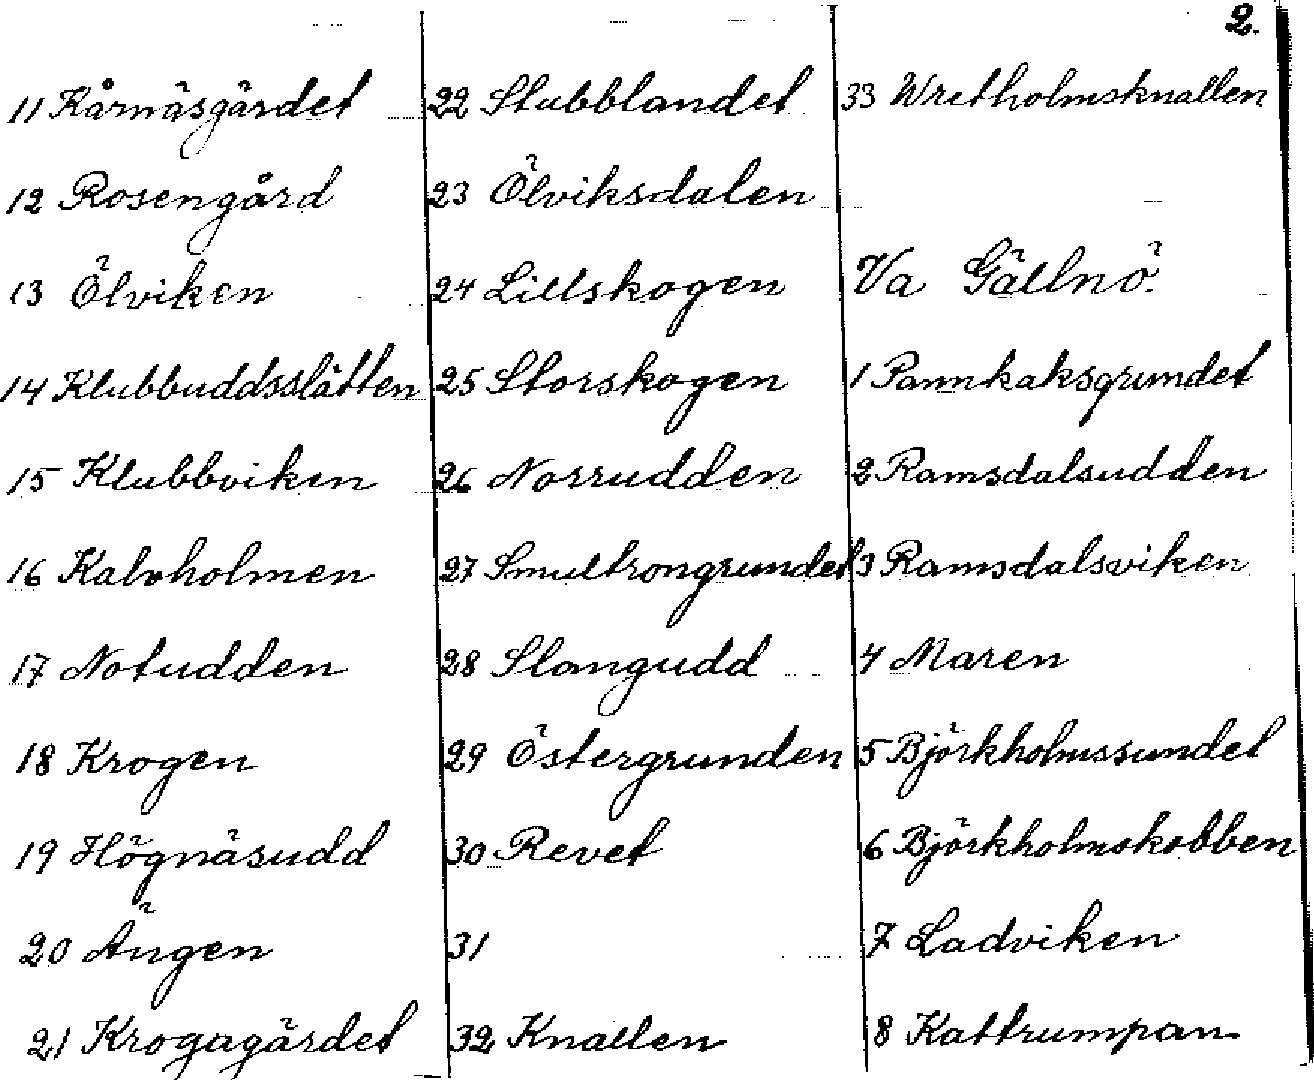 2.
11 Kårnäsgärdet
12 Rosengård
13 Ölviken
14 Klubbuddsslätten
15 Klubbviken
16 Kalvholmen
17 Notudden
18 Krogen
19 Högnäsudd
20 Ängen
21 Krogagärdet
22 Stubblandet
23 Ölviksdalen
24 Lillskogen
25 Storskogen
26 Norrudden
27 Smultrongrundet
28 Slangudd
29 Östergrunden
30 Revet
31
32 Knallen
33 Wretholmsknallen
Va Gällnö.
1 Pannkaksgrundet
2 Ramsdalsudden
3 Ramsdalsviken
4 Maren
5 Björkholmssundet
6 Björkholmskobben
7 Ladviken
8 Kattrumpan